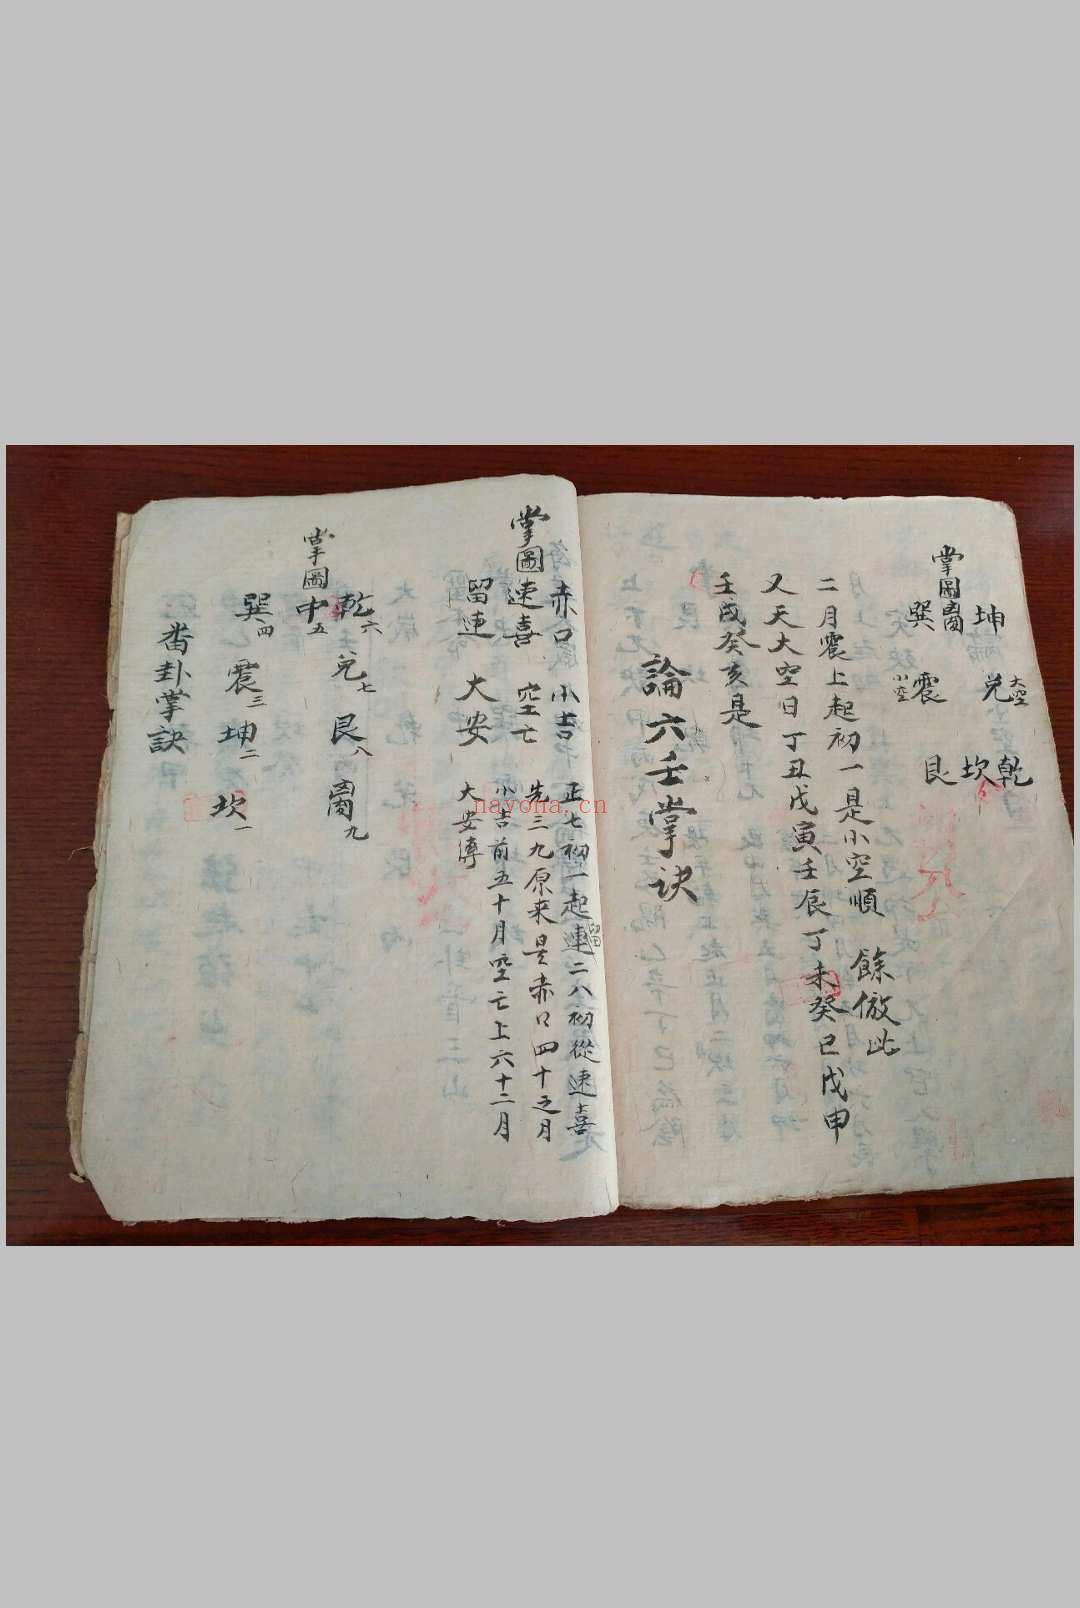 坤 兌大空 乾
掌圖 离 坎
巽 震小空 艮
二月震上起初一是小空順 餘倣此
又天大空日丁丑戊寅壬辰丁未癸巳戊申
壬戌癸亥是
論六壬掌訣
赤口 小吉 正七初一起連留二八初從速喜
掌圖 速喜 空亡 先三九原来是赤口四十之月
留連 大安 小吉前五十月空亡上六十二月
大安傳
乾六 兌七 艮八 离九
掌圖 中五
巽四 震三 坤二 坎一
番卦掌訣
nayona.cn